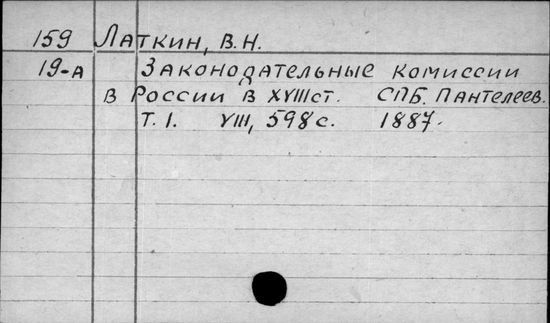 159 Латкин, В.Н.
19-А Законодательные комиссии
в России в XVIII ст. СПБ. Пантелеев.
Т. 1. VIII, 598 с. 1887.